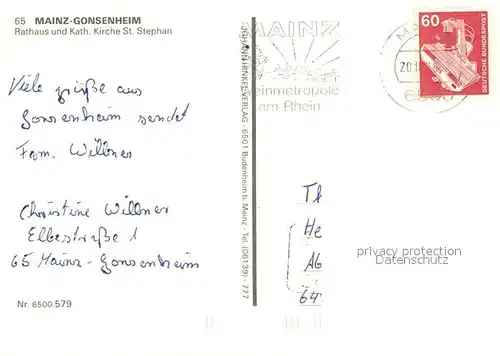 65 MAINZ-GONSENHEIM
Rathaus und Kath. Kirche St. Stephan
Viele grüße aus
Gonsenheim sendet
Fam. Willner
Christine Willner
Elbestraße 1
65 Mainz - Gonsenheim
Nr. 6500.579
JOHANN HENKE VERLAG - 6501 Budenheim b. Mainz - Tel. (06139) - 777
MAINZ
einmetropole
am Rhein
20.1
60
DEUTSCHE BUNDESPOST
Th
He
Ab
64
privacy protection
Datenschutz